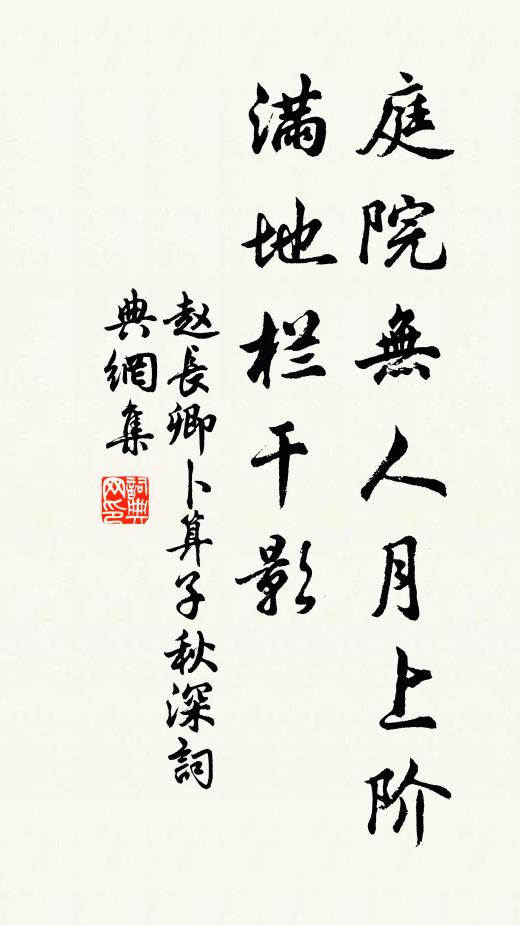 庭院無人月上阶
满地栏干影
赵長卿卜算子秋深詞
典網集
詞典网印